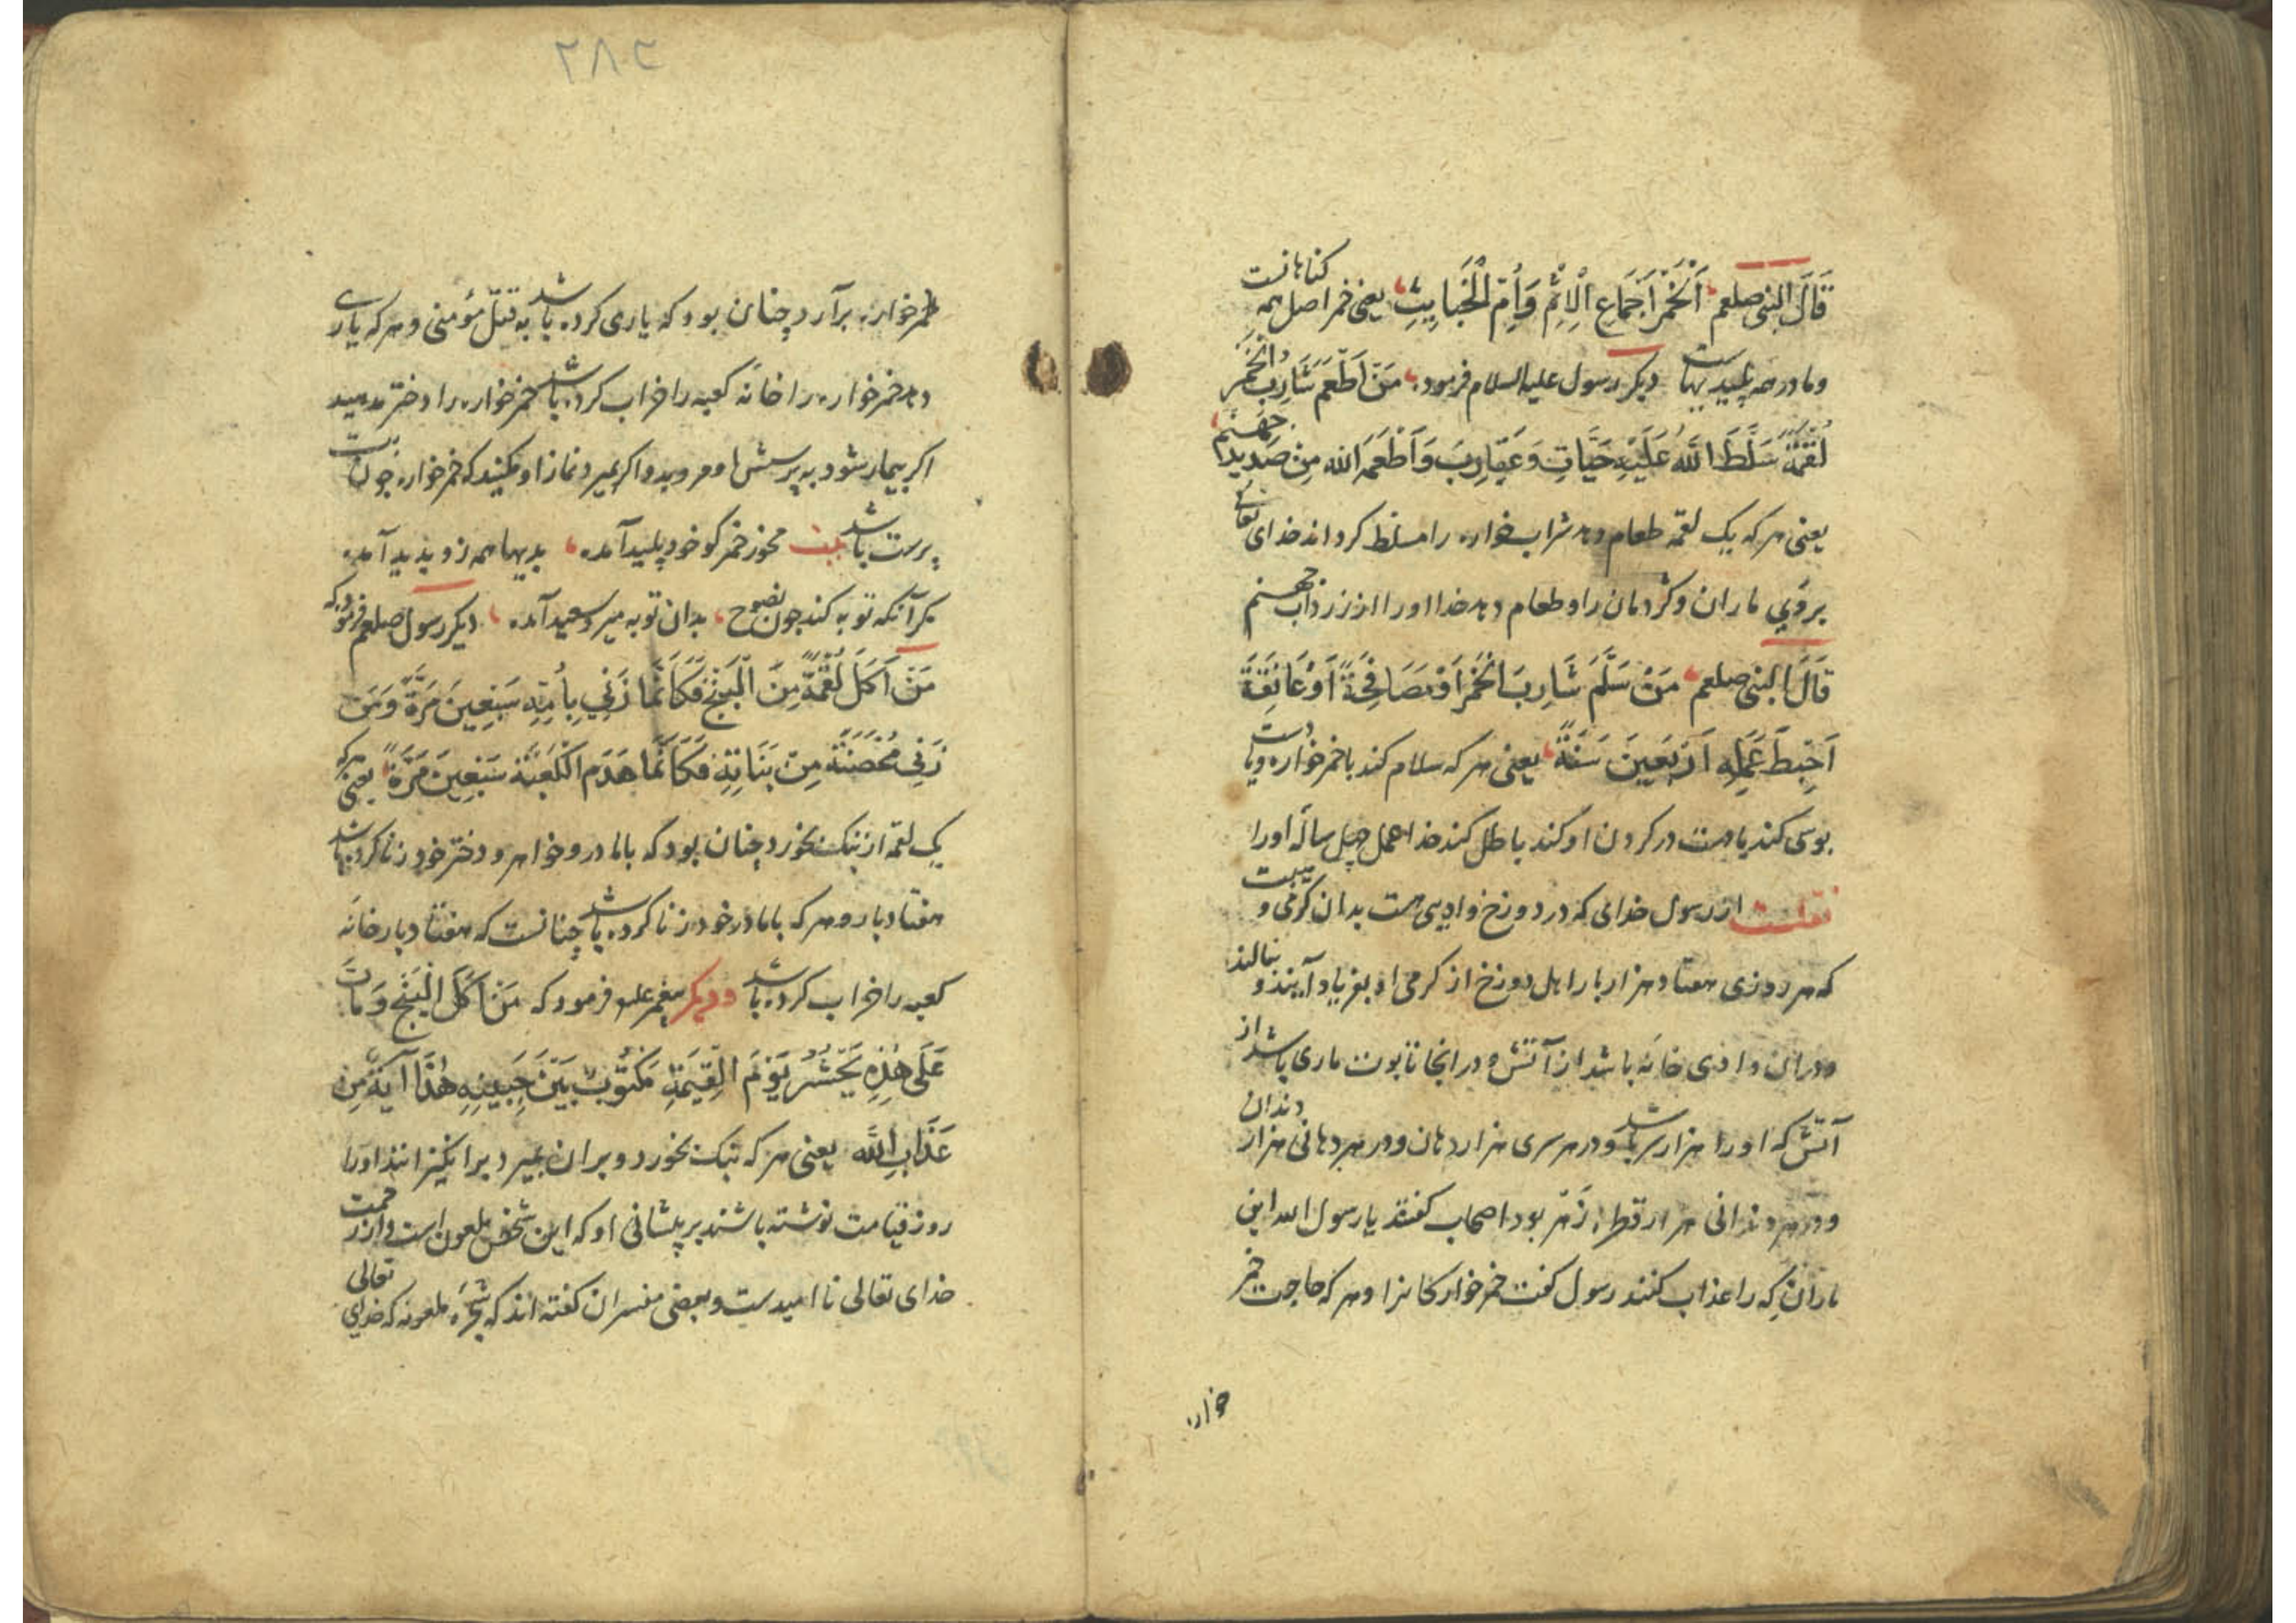 قَالَ النبی صلعم اَلْخَمْرُ جَمَاعُ الْاِثْمِ وَاُمُّ الْخَبَایِثِ یعنی خمر اصل همه کناهانست
ومادر همه پلیدیهاست دیکر رسول علیه السلام فرمود مَنْ اَطْعَمَ شَارِبَ الْخَمْرِ
لُقْمَةً سَلَّطَ اللّٰهُ عَلَیْهِ حَیَّاتٍ وَعَقَارِبَ وَاَطْعَمَهُ الله مِنْ صَدِیدِ جَهَنَّم
یعنی هرکه یک لقمه طعام دهد شراب خواره را مسلط کرداند خدای تعالی
بروی ماران وکژدمان را وطعام دهد خدا اورا از زرداب جهنم
قَالَ النبی صلعم مَنْ سَلَّمَ شَارِبَ الْخَمْرِ اَوْ مصَافِحَةً اَوْ عَانِقَةً
اَحْبَطَ عَمَلِهِ اَرْبَعِینَ سَنَةً یعنی هرکه سلام کند با خمرخواره ویا دست
بوسی کند یا دست در کردن او کند باطل کند خدا عمل چهل ساله اورا
نقلست از رسول خدای که در دوزخ وادیی هست بدان کرمی و هیبت
که هر روزی هفتاد هزار بار اهل دوزخ از کرمی او بفریاد آیند و بنالند
ودران وادی خانه باشد از آتش و در انجا تابوت ماری باشد از
آتش که اورا هزار سر باشد ودر هر سری هزار دهان ودر هر دهانی هزار دندان
ودر هر دندانی هزار قطره زهر بود اصحاب کفتند یا رسول الله این
ماران که را عذاب کنند رسول کفت خمرخوارکانرا وهرکه حاجت خمر
خواره
۲۸۲
خمرخواره برآرد چنان بود که یاری کرده باشد به قتل مؤمنی وهرکه یاری
دهد خمرخواره را خانه کعبه را خراب کرده باشد خمرخواره را دختر مدهید
اکر بیمار شود به پرسش او مروید واکر بمیرد نماز او مکنید که خمرخواره چون بت
پرست باشد بیت مخور خمر کو خود پلید آمده بدیها همه زو پدید آمده
مکر آنکه توبه کند چون نصوح بدان توبه میرد سعید آمده دیکر رسول صلعم فرمود که
مَنْ اَکَلَ لُقْمَةً مِنَ الْبَنْجِ فَکَاَنَّمَا زَنٰی بِاُمِّهِ سَبْعِینَ مَرَّةً وَمَن
زَنٰی مُحْصَنَةً مِنْ بَنَاتِهِ فَکَاَنَّمَا هَدَمَ الْکَعْبَةَ سَبْعِینَ مَرَّةً یعنی هرکه
یک لقمه از بنک بخورد چنان بود که با مادر وخواهر ودختر خود زنا کرده باشد
هفتاد بار وهرکه با مادر خود زنا کرده باشد چنانست که هفتاد بار خانه
کعبه را خراب کرده باشد ودیکر پیغمبر علیه فرمود که مَنْ اَکَلَ الْبَنْجَ وَمَاتَ
عَلَی هٰذِهِ یُحْشَرُ یَوْمَ الْقِیٰمَةِ مَکْتُوبٌ بَیْنَ جَبِینِهِ هٰذَا آیَةٌ مِن
عَذَابِ اللّٰه یعنی هرکه بنک بخورد وبران بمیرد برانکیزانند اورا
روز قیامت نوشته باشند بر پیشانی او که این شخص ملعون است واز رحمت
خدای تعالی نا امیدست وبعضی مفسران کفته اند که شجره ملعونه که خدای تعالی